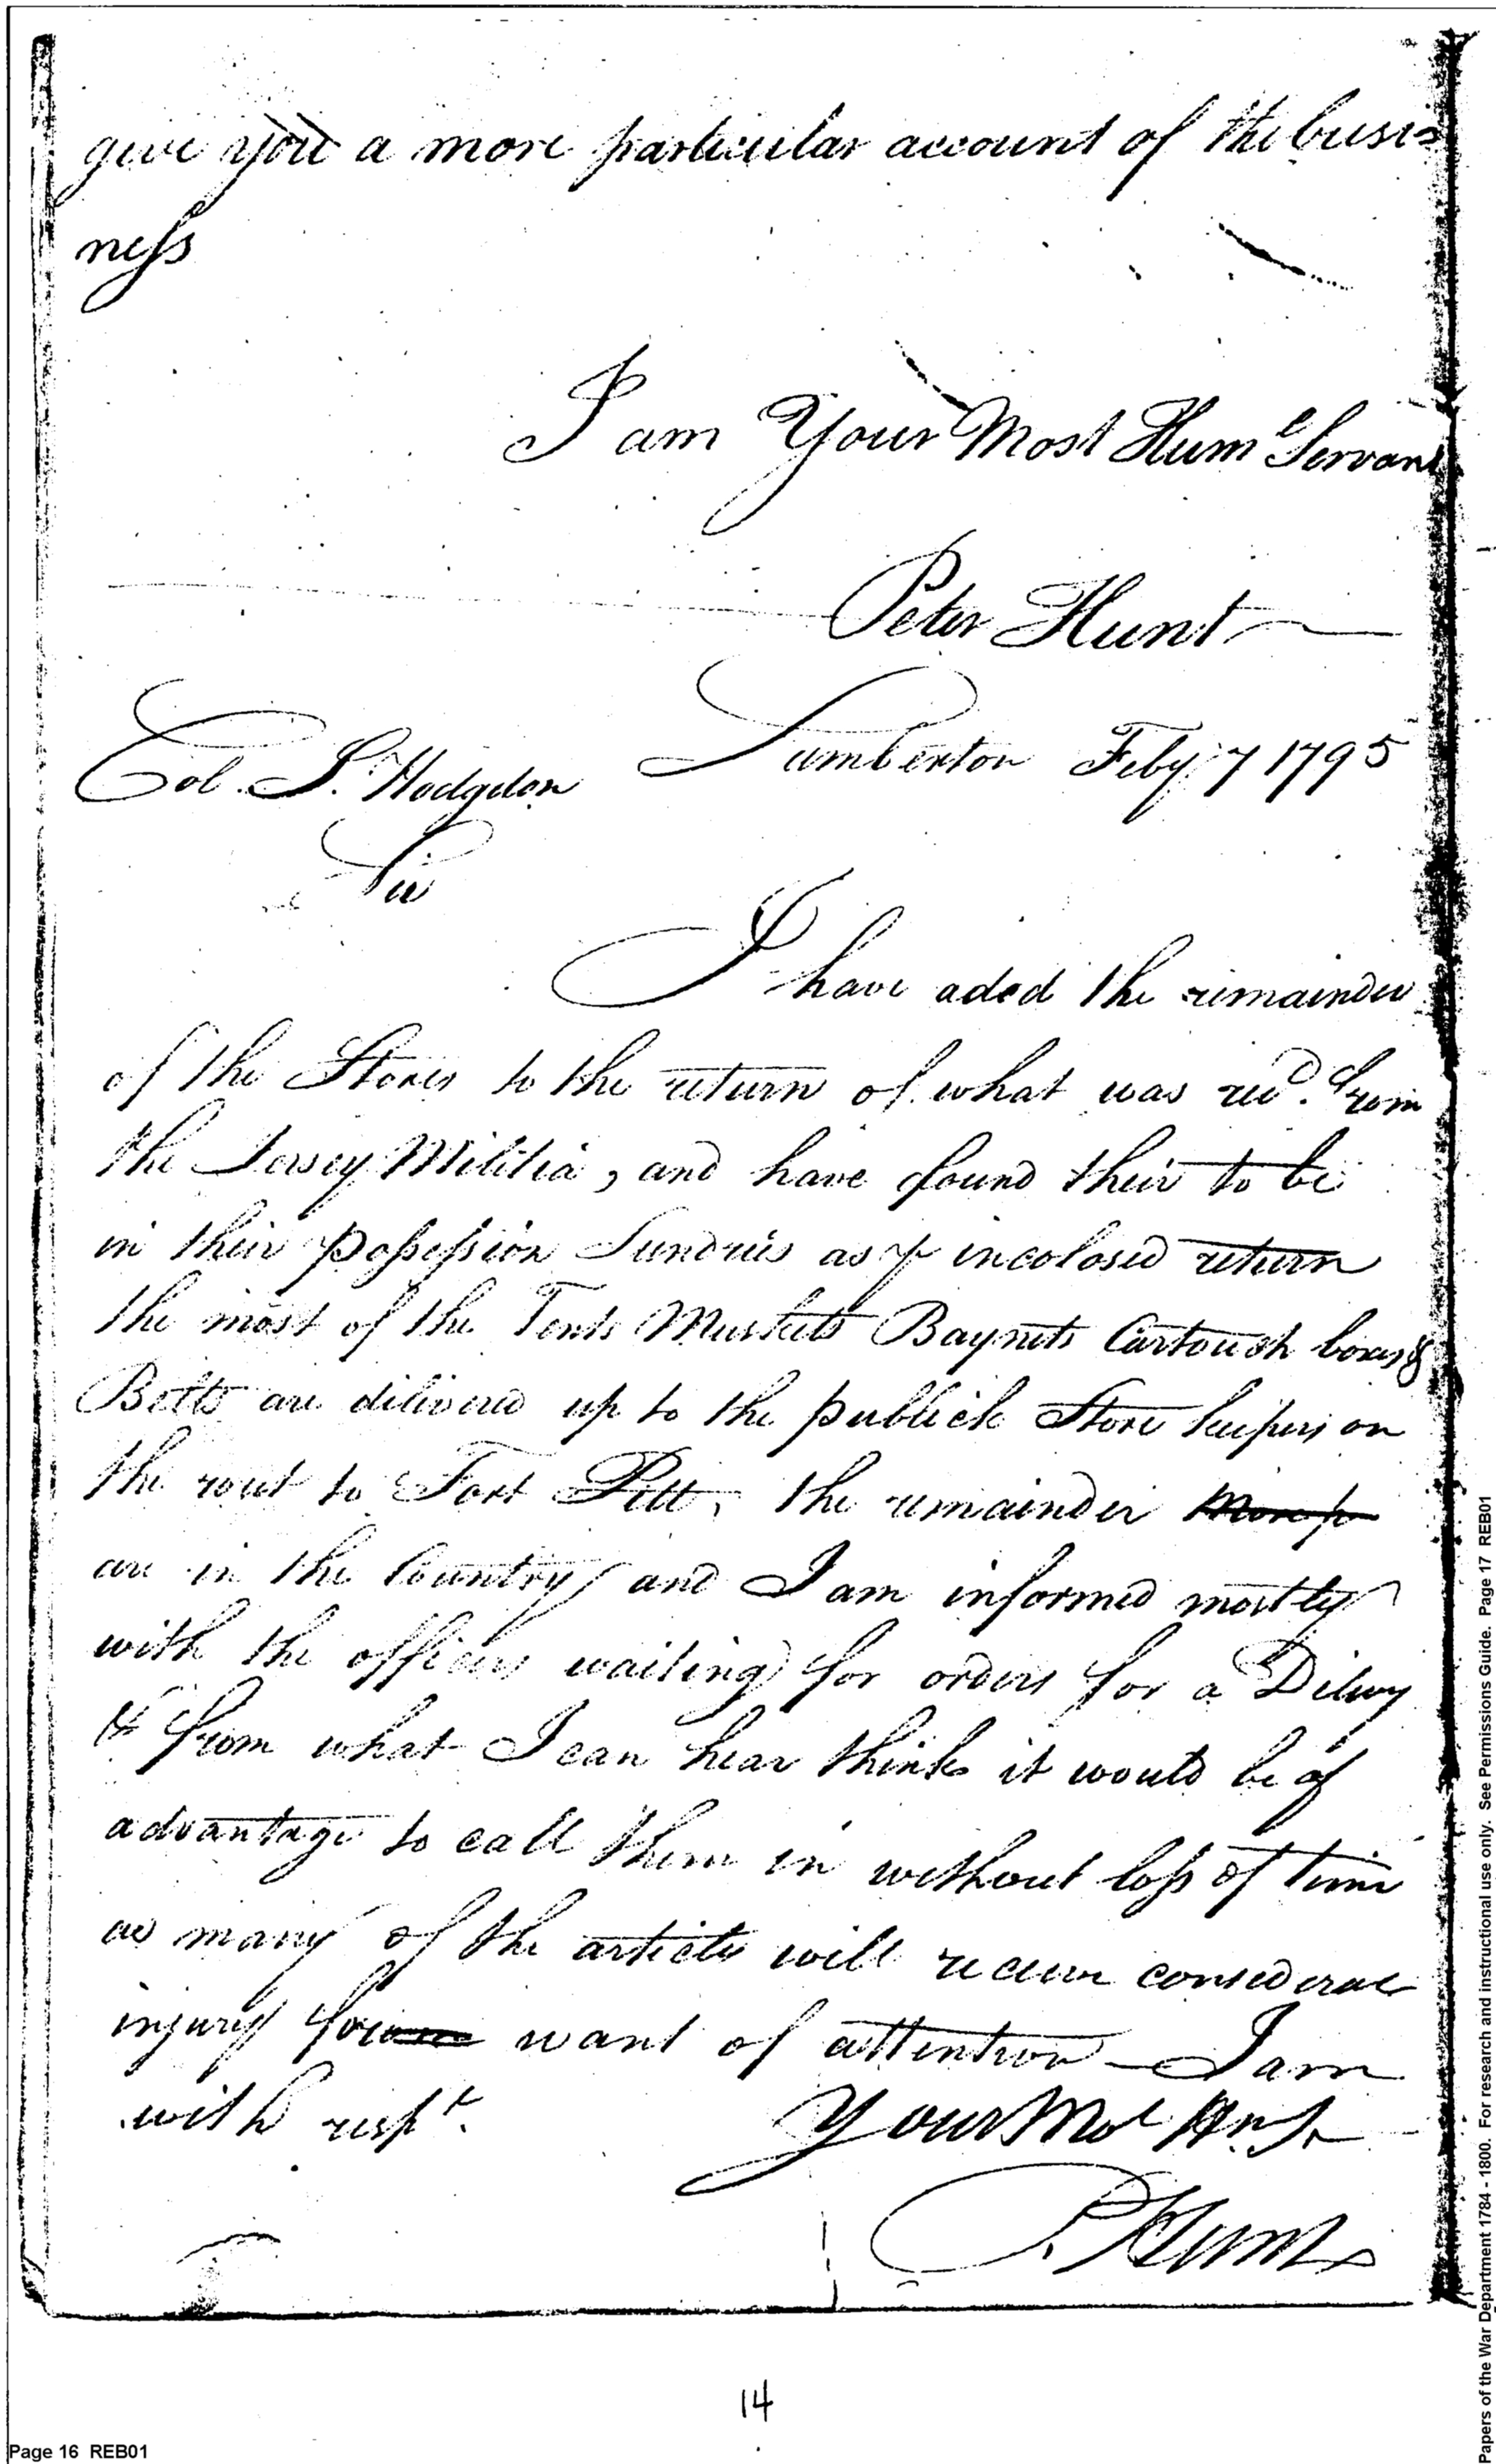 give you a more particular account of the busi=
ness
I am Your Most Hume Servant
Peter Hunt
Lumberton Feby 7 1795
Col. S. Hodgdon
Sir
I have aded the remainder
of the Stores to the return of what was recd. from
the Jersey Militia, and have found their to be
in their possession Sundries as incolosed return
the most of the Tents Muskets Baynets Cartouch boxes &
Belts are dilivered up to the publick Store keepers on
the rout to Fort Pitt, the remainder
are in the Country and I am informed mostly
with the officers waiting for orders for a Dilivy
& from what I can hear think it would be of
advantage to call them in without loss of time
as many of the articles will receive considerae
injury for want of attention - I am
with respt.
Your Mot
P. Hunt
14
Page 16 REB01
Papers of the War Department 1784 - 1800. For research and instructional use only. See Permissions Guide. Page 17 REB01